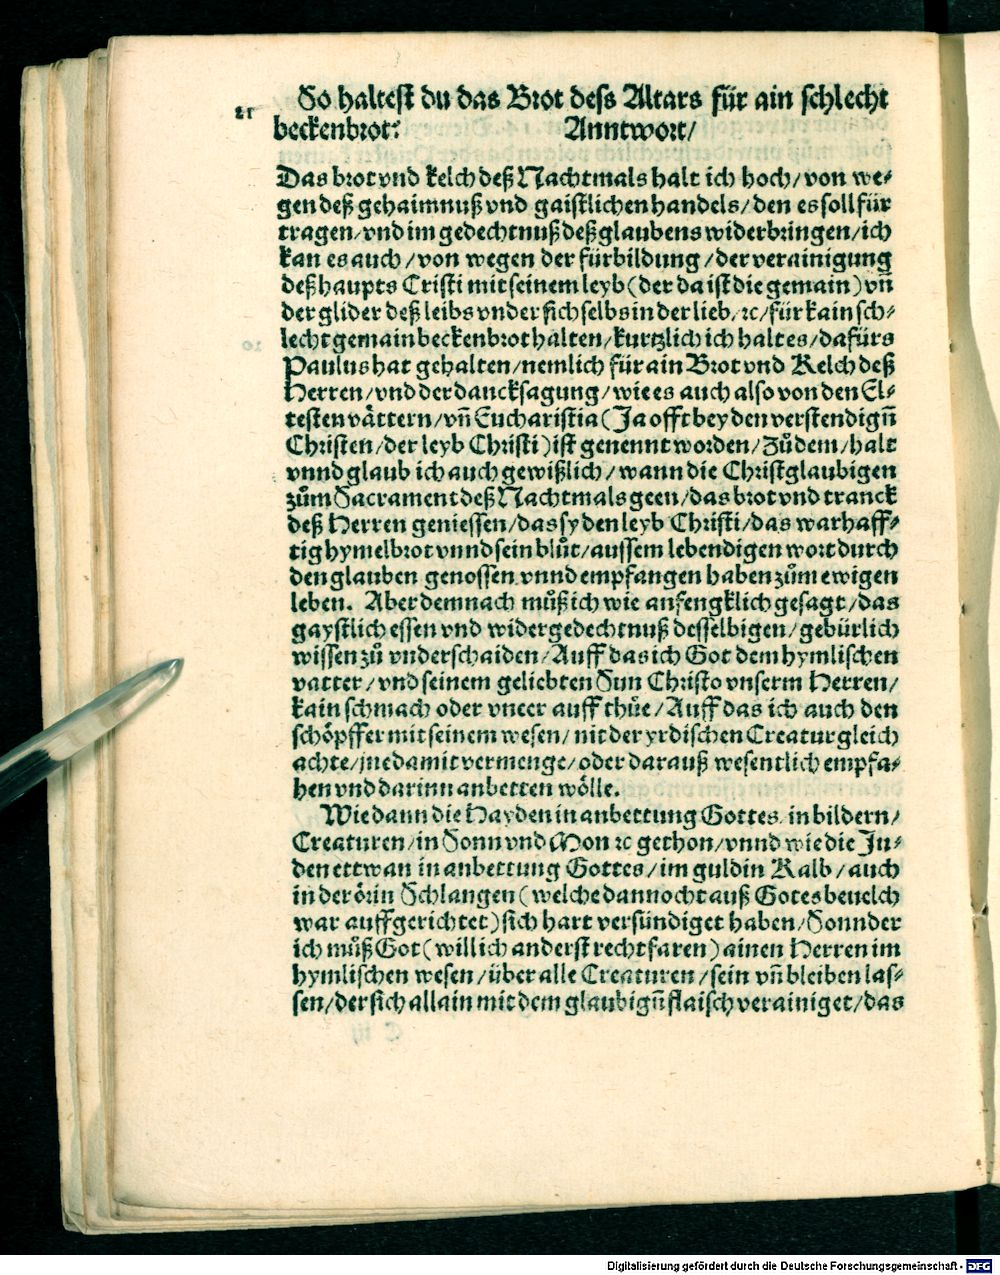 21
So haltest du das Brot dess Altars für ain schlecht
beckenbrot? Anntwort/
Das brot vnd kelch deß Nachtmals halt ich hoch/ von we⸗
gen deß gehaimnuß vnd gaistlichen handels/ den es soll für
tragen/ vnd im gedechtnuß deß glaubens widerbringen/ ich
kan es auch/ von wegen der fürbildung/ der verainigung
deß haupts Cristi mit seinem leyb (der da ist die gemain) vñ
der glider deß leibs vnder sich selbs in der lieb/ ꝛc/ für kain sch⸗
lecht gemain beckenbrot halten/ kurtzlich ich halt es/ dafürs
Paulus hat gehalten/ nemlich für ain Brot vnd Kelch deß
Herren/ vnd der dancksagung/ wie es auch also von den El⸗
testen vättern/ vñ Eucharistia (Ja offt bey den verstendigñ
Christen/ der leyb Christi) ist genennt worden/ Zůdem/ halt
vnnd glaub ich auch gewißlich/ wann die Christglaubigen
zům Sacrament deß Nachtmals geen/ das brot vnd tranck
deß Herren geniessen/ das sy den leyb Christi/ das warhaff⸗
tig hymelbrot vnnd sein blůt/ aussem lebendigen wort durch
den glauben genossen vnnd empfangen haben zům ewigen
leben. Aber demnach můß ich wie anfengklich gesagt/ das
gaystlich essen vnd widergedechtnuß desselbigen/ gebürlich
wissen zů vnderschaiden/ Auff das ich Got dem hymlischen
vatter/ vnd seinem geliebten Sun Christo vnserm Herren/
kain schmach oder vneer auff thůe/ Auff das ich auch den
schöpffer mit seinem wesen/ nit der yrdischen Creatur gleich
achte/ in damit vermenge/ oder darauß wesentlich empfa⸗
hen vnd darinn anbetten wölle.
Wie dann die Hayden in anbettung Gottes/ in bildern/
Creaturen/ in Sonn vnd Mon ꝛc gethon/ vnnd wie die Ju⸗
den ettwan in anbettung Gottes/ im guldin Kalb/ auch
in der örin Schlangen (welche dannocht auß Gotes beuelch
war auffgerichtet) sich hart versündiget haben/ Sonnder
ich můß Got (will ich anderst recht faren) ainen Herren im
hymlischen wesen/ über alle Creaturen/ sein vñ bleiben las⸗
sen/ der sich allain mit dem glaubigñ flaisch verainiget/ das
Digitalisierung gefördert durch die Deutsche Forschungsgemeinschaft - DFG